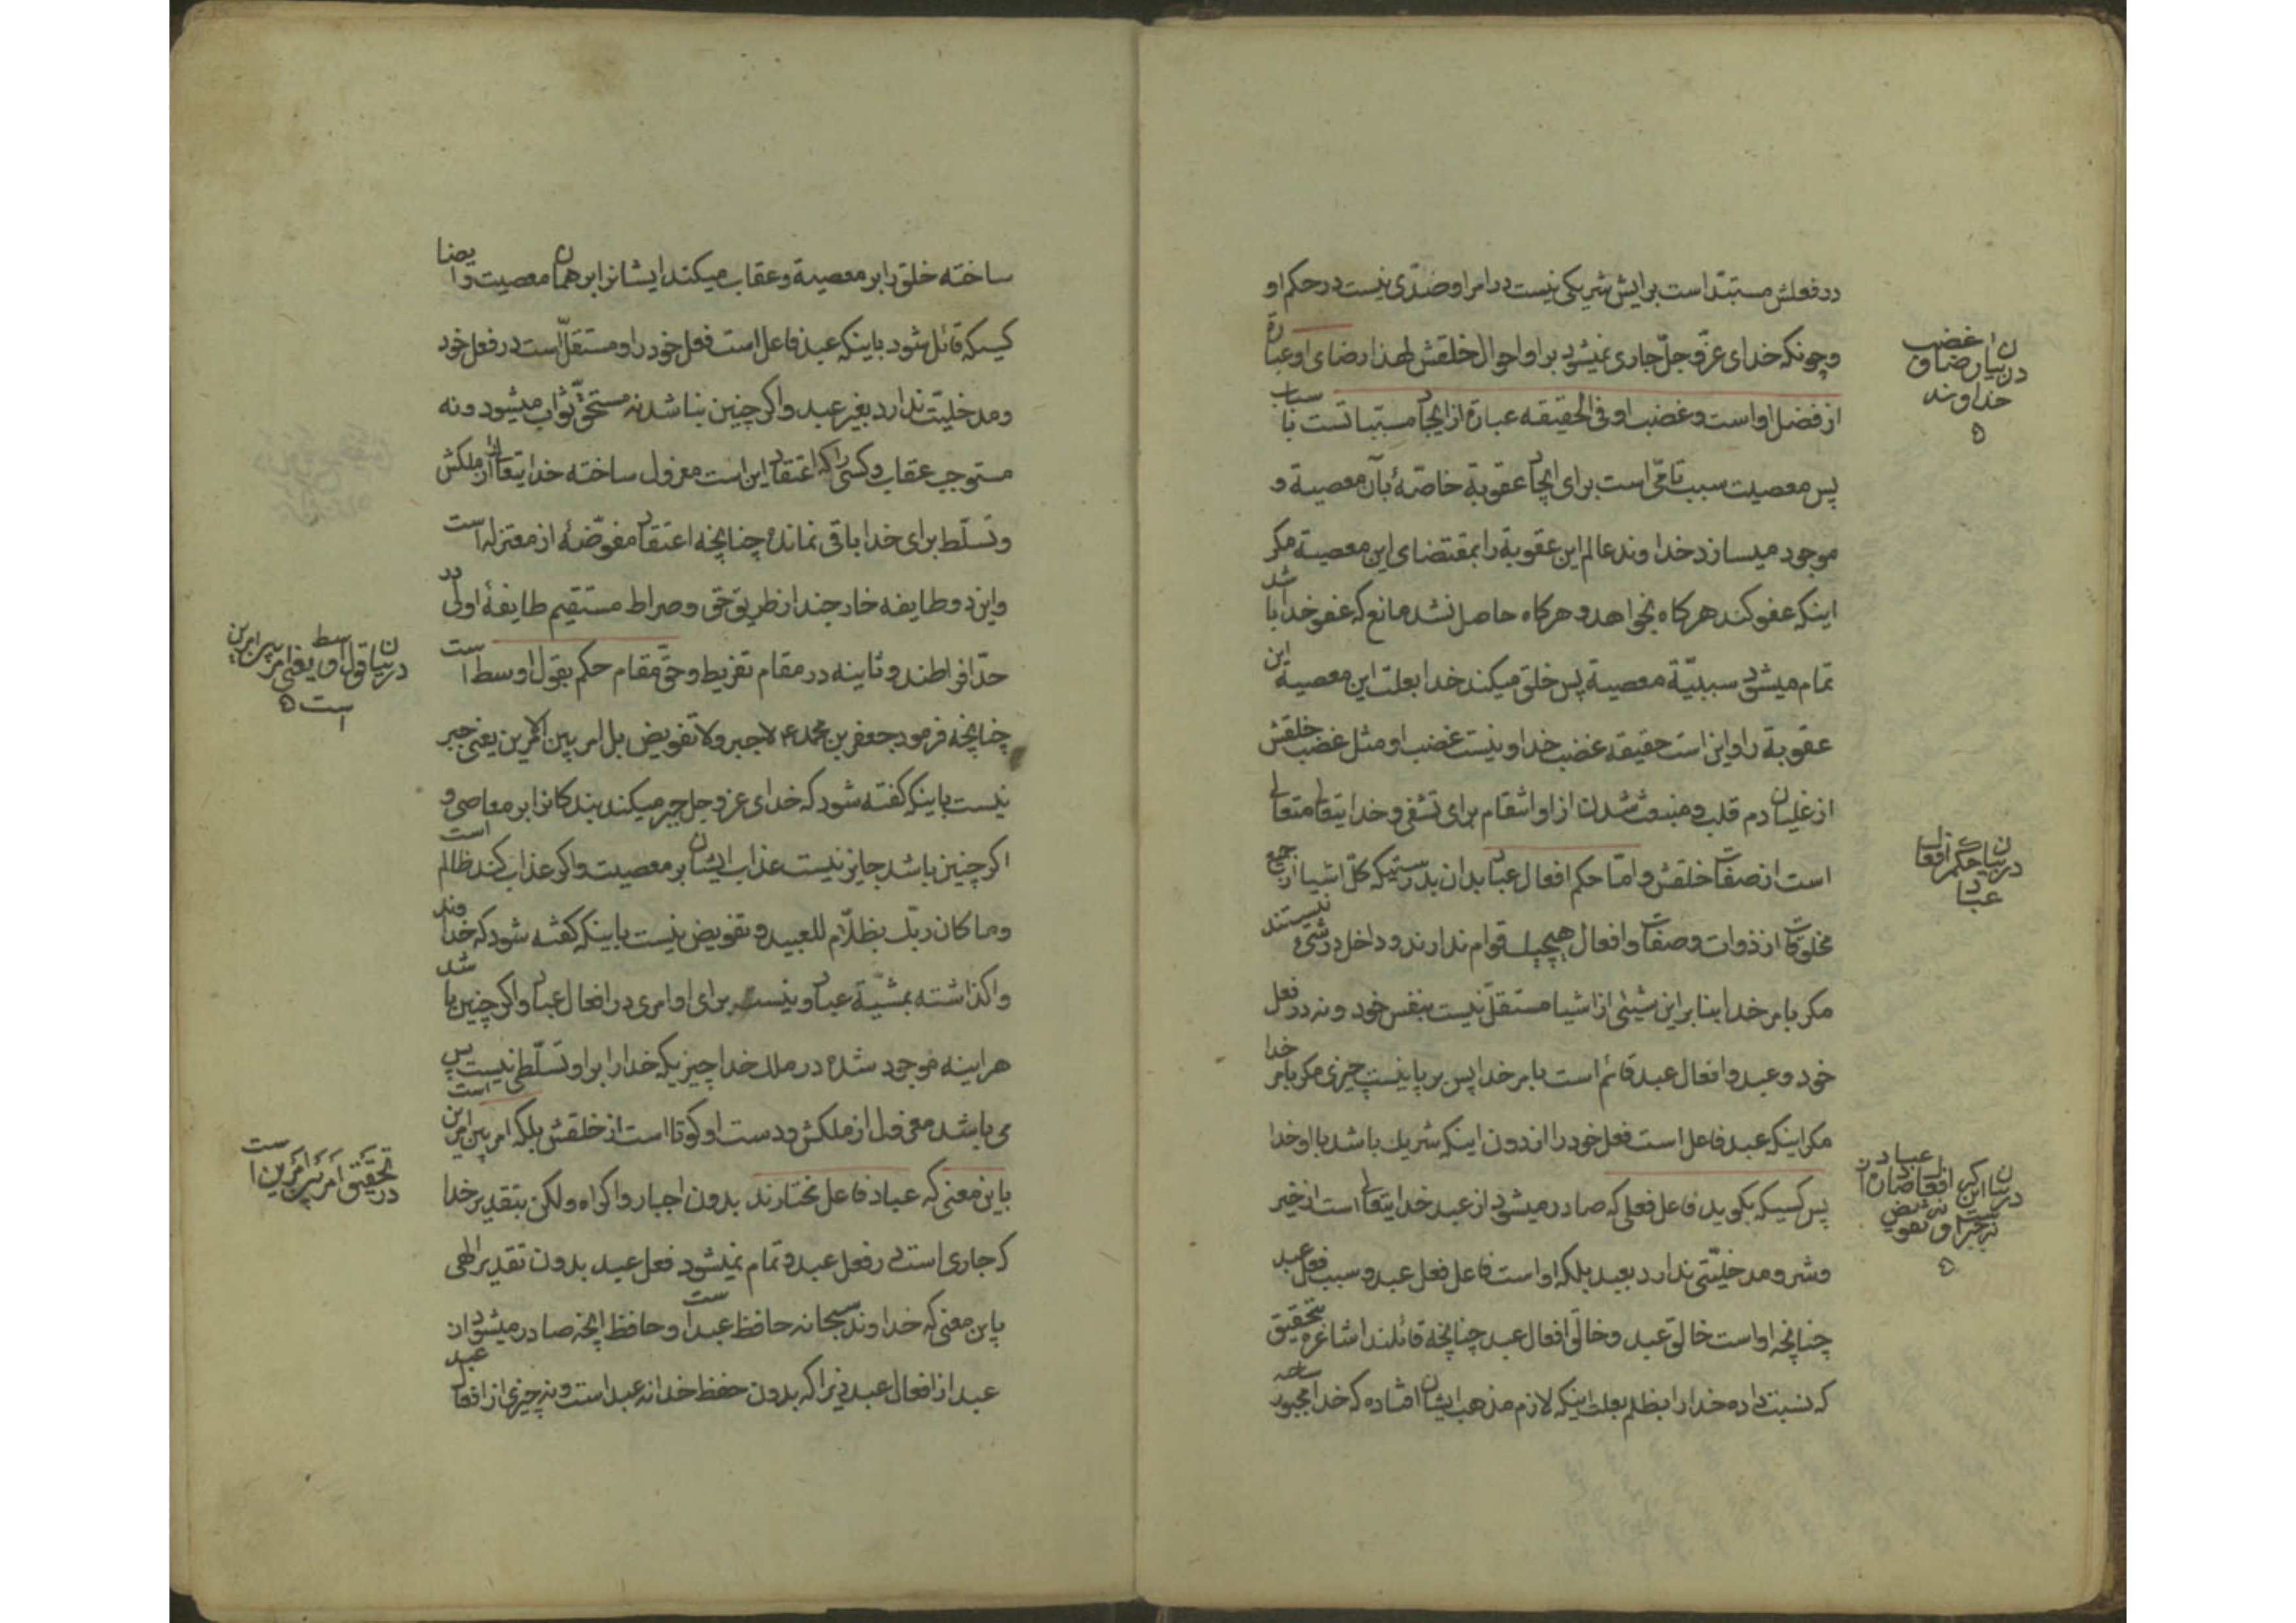 در فعلش مستبدّ است برایش شریکی نیست در امر او ضدّی نیست در حکم او
و چونکه خدای عزّ و جلّ جاری نمیشود بر او احوال خلقش لهذا رضای او عبارة
از فضل او است و غضب او فی الحقیقه عبارة از ایجاد مسبّبا تست باسباب
پس معصیت سبب تامّی است برای ایجاد عقوبة خاصّهٔ بآن معصیة و
موجود میسازد خداوند عالم این عقوبة را بمقتضای این معصیة مکر
اینکه عفو کند هر کاه بخواهد و هر کاه حاصل نشد مانع که عفو خدا باشد
تمام میشود سببیّة معصیة پس خلق میکند خدا بعلت این معصیة این
عقوبة را و این است حقیقه غضب خدا و نیست غضب او مثل غضب خلقش
از غلیان دم قلب و منبعث شدن از او انتقام برای تشفی و خدایتعالی متعالی
است از صفات خلقش و امّا حکم افعال عباد بدان بدرستیکه کلّ اشیا از جمیع
مخلوقات از ذوات و صفات و افعال هیچیک قوام ندارند و داخل در شیء نیستند
مکر بامر خدا بنا بر این شیئی از اشیا مستقلّ نیست بنفس خود و نه در فعل
خود و عبد و افعال عبد قائم است بامر خدا پس بر پا نیست چیزی مکر بامر خدا
مکر اینکه عبد فاعل است فعل خود را از دون اینکه شریك باشد با او خدا
پس کسیکه بکوید فاعل فعلی که صادر میشود از عبد خدایتعالی است از خیر
و شر و مدخلیّتی ندارد بعبد بلکه او است فاعل فعل عبد و سبب فعل عبد
چنانچه او است خالق عبد و خالق افعال عبد چنانچه قائلند اشاعره بتحقیق
که نسبت داده خدا را بظلم بعلت اینکه لازم مذهب ایشان افتاده که خدا مجبور ساخته
در بیان رضا و غضب
خداوند
در بیان حکم افعال
عباد
ساخته خلق را بر معصیة و عقاب میکند ایشانرا بر همان معصیت و ایضا
کسیکه قائل شود باینکه عبد فاعل است فعل خود را و مستقلّ است در فعل خود
و مدخلیّت ندارد بغیر عبد و اکر چنین نباشد نه مستحقّ ثواب میشود و نه
مستوجب عقاب و کسی را که اعتقاد این است معزول ساخته خدایتعالی را از ملکش
و تسلّط برای خدا باقی نمانده چنانچه اعتقاد مفوّضهٔ از معتزله است
و این دو طایفه خارجند از طریق حق و صراط مستقیم طایفهٔ اولی در
حدّ افراطند و ثانیه در مقام تفریط و حقّ مقام حکم بقول اوسط است
چنانچه فرمود جعفر بن محمد ع لا جبر ولا تفویض بل امر بین الامرین یعنی جبر
نیست باینکه کفته شود که خدای عز و جل جبر میکند بندکانرا بر معاصی و
اکر چنین باشد جایز نیست عذاب ایشان بر معصیت و اکر عذاب کند ظالم است
وما کان ربّك بظلّام للعبید و تفویض نیست باینکه کفته شود که خداوند
واکذاشته بمشیّة عباد و نیست برای او امری در افعال عباد و اکر چنین باشد
هر اینه موجود شده در ملك خدا چیزیکه خدا را بر او تسلّطی نیست پس
می باشد معزول از ملکش و دست او کوتا است از خلقش بلکه امر بین امرین است
باین معنی که عباد فاعل مختارند بدون اجبار و اکراه ولکن بتقدیر خدا
که جاری است در فعل عبد و تمام نمیشود فعل عبد بدون تقدیر الهی
باین معنی که خداوند سبحانه حافظ عبد است و حافظ انچه صادر میشود از ان
عبد از افعال عبد زیرا که بدون حفظ خدا نه عبد است و نه چیزی از افعال عبد
در بیان قول اوسط یعنی امر بین امرین
است
در تحقیق امر بین امرین است